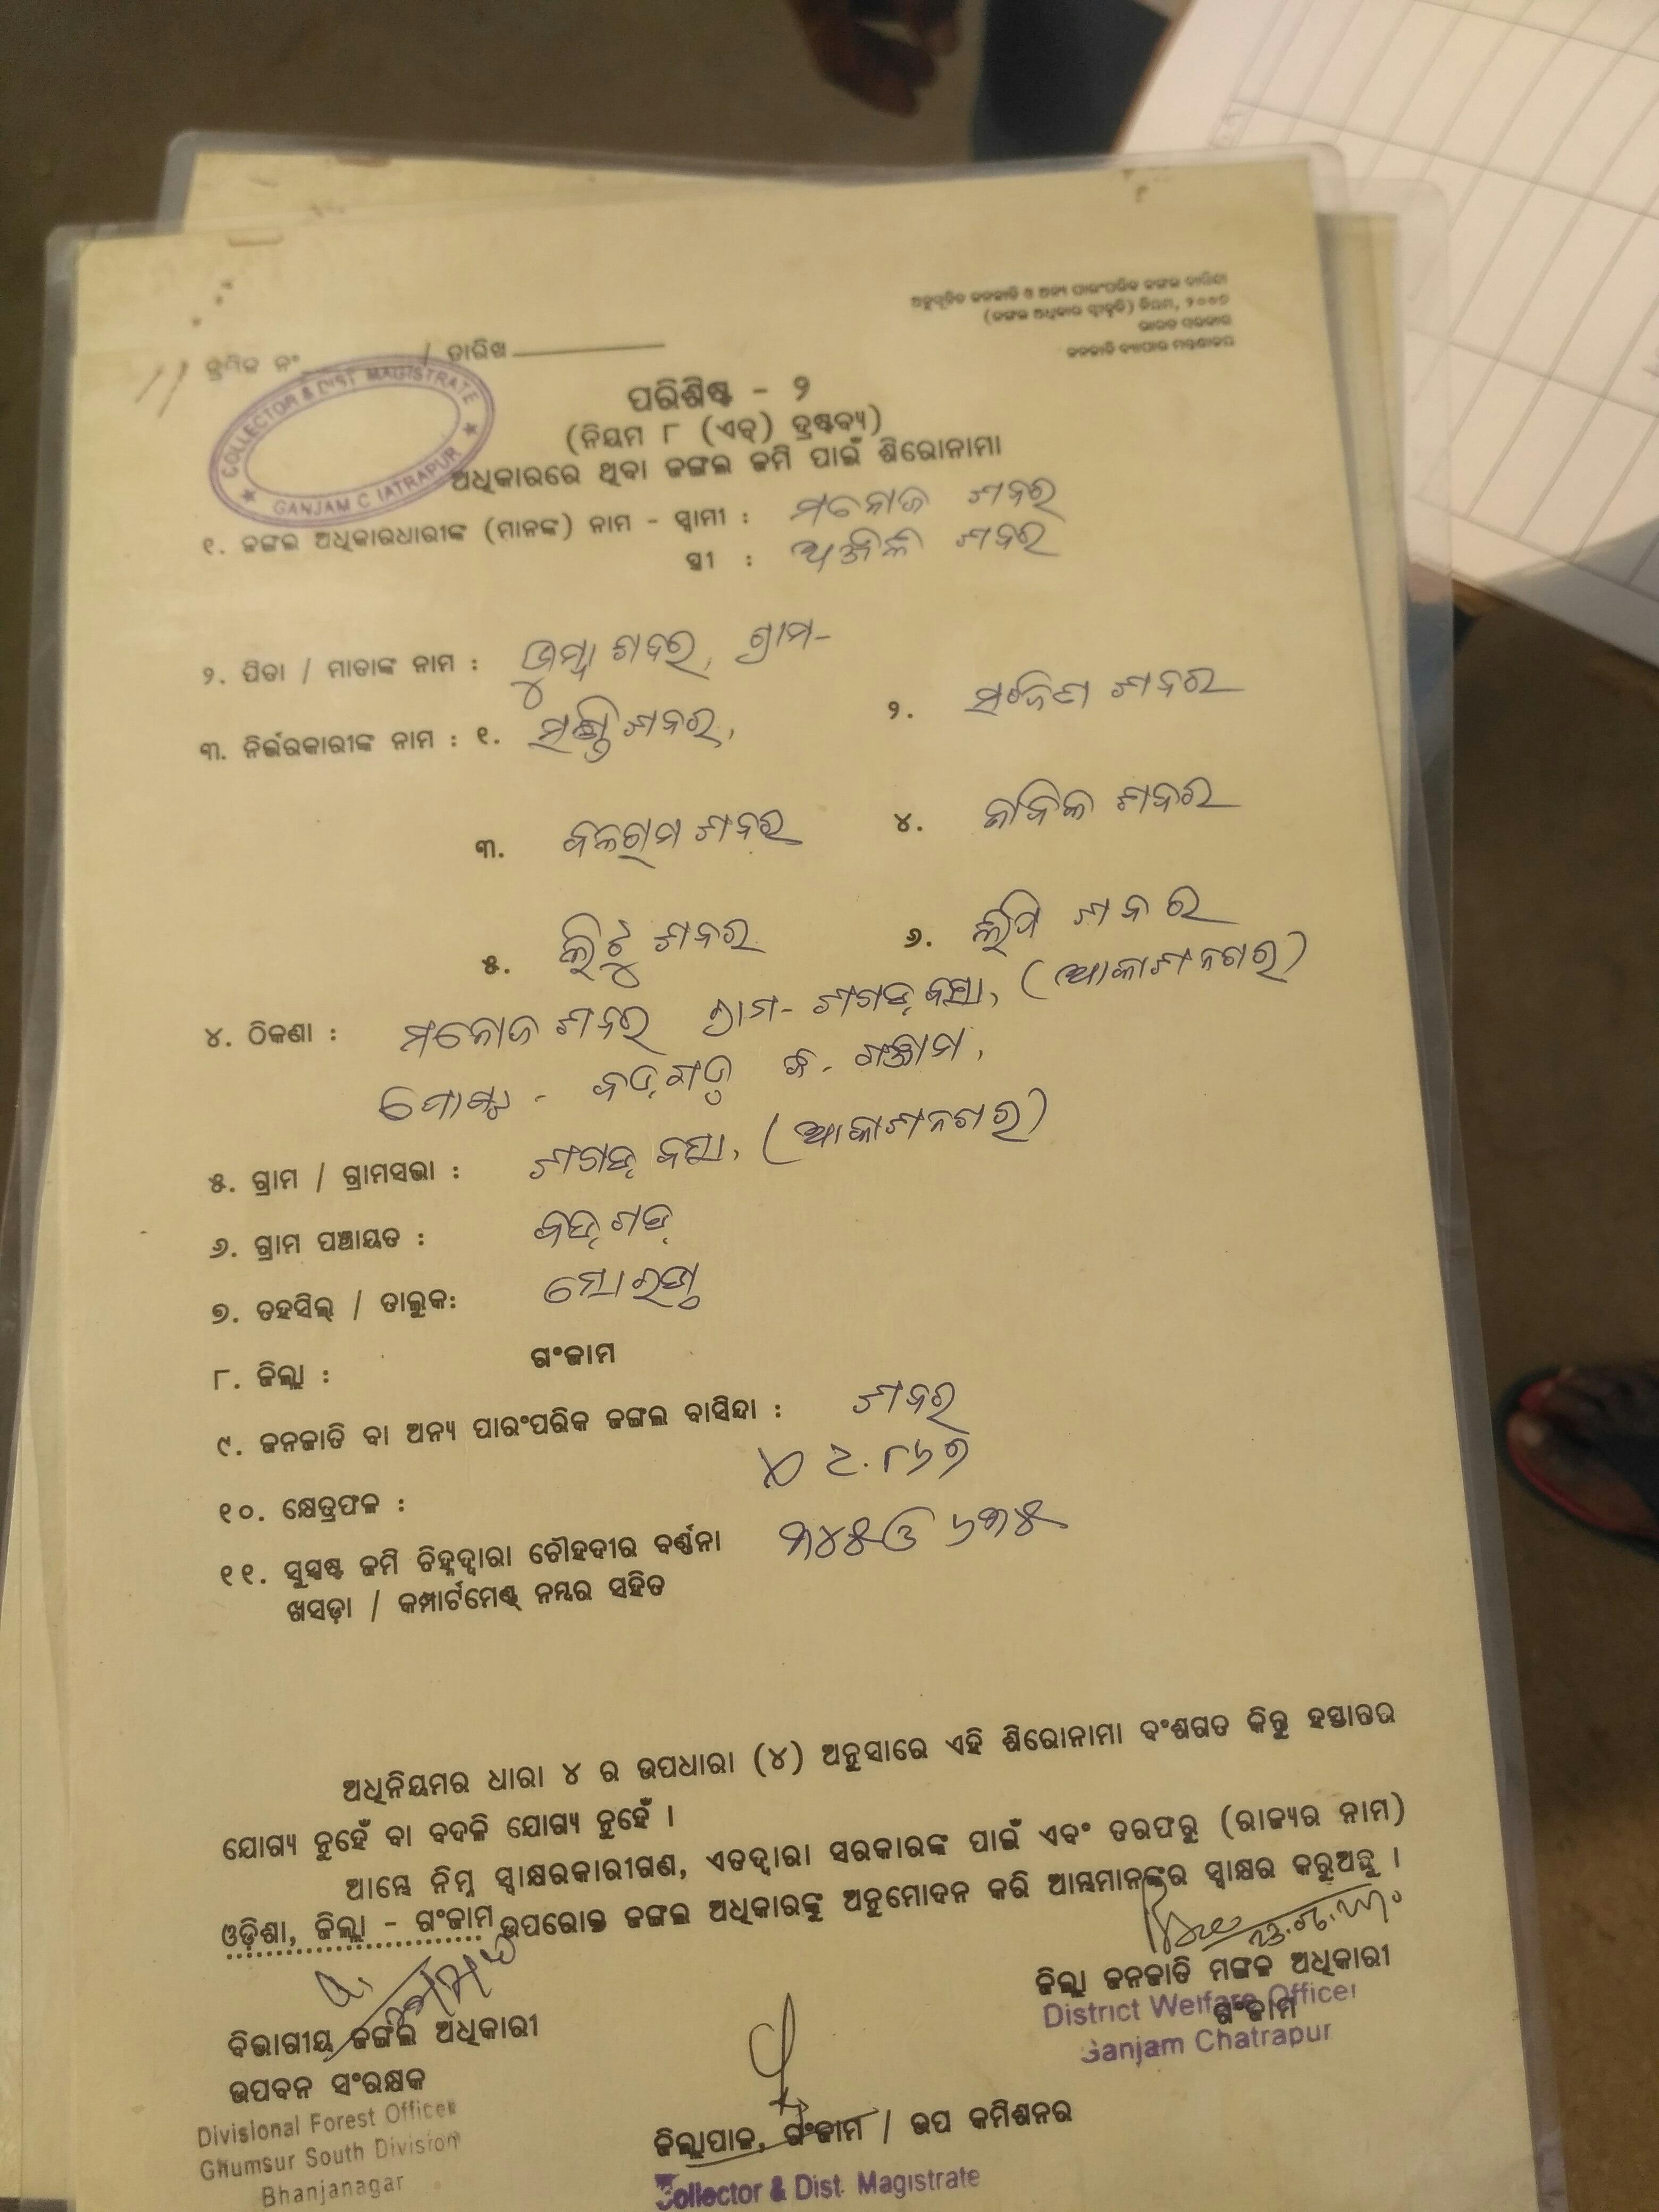 ଅନୁସୂଚିତ ଜନଜାତି ଓ ଅନ୍ୟ ପାରଂପରିକ ଜଙ୍ଗଲ ବାସିନ୍ଦା
(ଜଙ୍ଗଲ ଅଧିକାର ସ୍ୱୀକୃତି) ନିୟମ, ୨୦୦୭
ଭାରତ ସରକାର
ଜନଜାତି ବ୍ୟାପାର ମନ୍ତ୍ରଣାଳୟ
କ୍ରମିକ ନଂ / ତାରିଖ
COLLECTOR & DIST MAGISTRATE
GANJAM C IATRAPUR
ପରିଶିଷ୍ଟ - ୨
(ନିୟମ ୮ (ଏଚ୍) ଦ୍ରଷ୍ଟବ୍ୟ)
ଅଧିକାରରେ ଥିବା ଜଙ୍ଗଲ ଜମି ପାଇଁ ଶିରୋନାମା
୧. ଜଙ୍ଗଲ ଅଧିକାରଧାରୀଙ୍କ (ମାନଙ୍କ) ନାମ - ସ୍ୱାମୀ : ମନୋଜ ଶବର
ସ୍ତ୍ରୀ : ଶବର
୨. ପିତା / ମାତାଙ୍କ ନାମ : ଶବର, ଗ୍ରାମ-
୩. ନିର୍ଭରକାରୀଙ୍କ ନାମ : ୧. ଶବର, ୨. ଶବର
୩. ବଳରାମ ଶବର ୪. ଶବର
୫. ଲିଟୁ ଶବର ୬. ଲିପି ଶବର
୪. ଠିକଣା : ମନୋଜ ଶବର ଗ୍ରାମ- ଶଗଡ଼ବସା, (ଆକାଶନଗର)
ପୋଷ୍ଟ - ବଡ଼ଗଡ଼ ଜି. ଗଞ୍ଜାମ,
୫. ଗ୍ରାମ / ଗ୍ରାମସଭା : ଶଗଡ଼ବସା, (ଆକାଶନଗର)
୬. ଗ୍ରାମ ପଞ୍ଚାୟତ : ବଡ଼ଗଡ଼
୭. ତହସିଲ୍ / ତାଲୁକ: ସୋରଡ଼ା
୮. ଜିଲ୍ଲା : ଗଂଜାମ
୯. ଜନଜାତି ବା ଅନ୍ୟ ପାରଂପରିକ ଜଙ୍ଗଲ ବାସିନ୍ଦା : ଶବର
୧୦. କ୍ଷେତ୍ରଫଳ : ୮୬୭
୧୧. ସୁସ୍ପଷ୍ଟ ଜମି ଚିହ୍ନଦ୍ୱାରା ଚୌହଦୀର ବର୍ଣ୍ଣନା ୩୪୫ ଓ ୬୩୫
ଖସଡ଼ା / କମ୍ପାର୍ଟମେଣ୍ଟ୍ ନମ୍ବର ସହିତ
ଅଧିନିୟମର ଧାରା ୪ ର ଉପଧାରା (୪) ଅନୁସାରେ ଏହି ଶିରୋନାମା ବଂଶଗତ କିନ୍ତୁ ହସ୍ତାନ୍ତର
ଯୋଗ୍ୟ ନୁହେଁ ବା ବଦଳି ଯୋଗ୍ୟ ନୁହେଁ ।
ଆମ୍ଭେ ନିମ୍ନ ସ୍ୱାକ୍ଷରକାରୀଗଣ, ଏତଦ୍ୱାରା ସରକାରଙ୍କ ପାଇଁ ଏବଂ ତରଫରୁ (ରାଜ୍ୟର ନାମ)
ଓଡ଼ିଶା, ଜିଲ୍ଲା - ଗଂଜାମ ଉପରୋକ୍ତ ଜଙ୍ଗଲ ଅଧିକାରଙ୍କୁ ଅନୁମୋଦନ କରି ଆମ୍ଭମାନଙ୍କର ସ୍ୱାକ୍ଷର କରୁଅଛୁ ।
ଜିଲ୍ଲା ଜନଜାତି ମଙ୍ଗଳ ଅଧିକାରୀ
ଗଂଜାମ
District Welfare Officer
Ganjam Chatrapur
ବିଭାଗୀୟ ଜଙ୍ଗଲ ଅଧିକାରୀ
ଉପବନ ସଂରକ୍ଷକ
Divisional Forest Officer
Ghumsur South Division
Bhanjanagar
ଜିଲ୍ଲାପାଳ, ଗଂଜାମ / ଉପ କମିଶନର
Collector & Dist. Magistrate